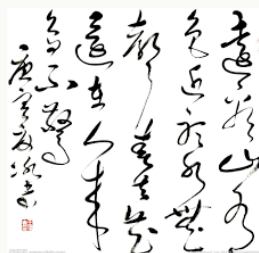 遠看山有
色近聽水無
聲春去花
還在人來
鳥不驚
庚寅夏